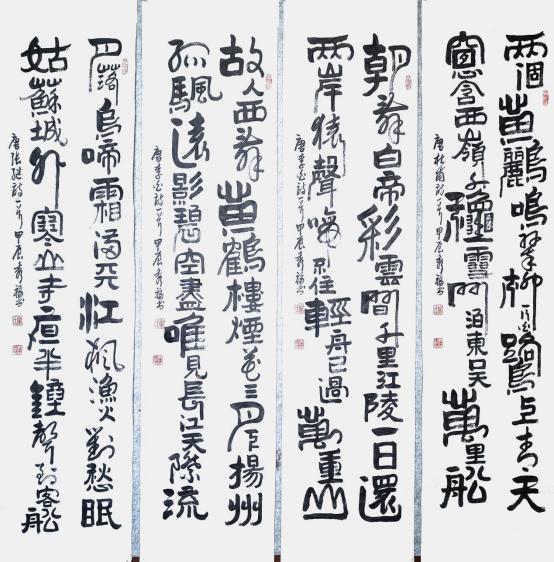 两個黄鸝鳴翠柳一行白鷺上青天
窗含西嶺千秋雪門泊東吴萬里船
唐杜甫詩一首甲辰书
朝辞白帝彩雲間千里江陵一日還
两岸猿聲啼不住輕舟已過萬重山
唐李白詩一首甲辰书
故人西辞黄鶴樓煙花三月下揚州
孤颿遠影碧空盡唯見長江天際流
唐李白詩一首甲辰书
月落烏啼霜滿天江楓漁火對愁眠
姑蘇城外寒山寺夜半鐘聲到客船
唐张继詩一首甲辰书